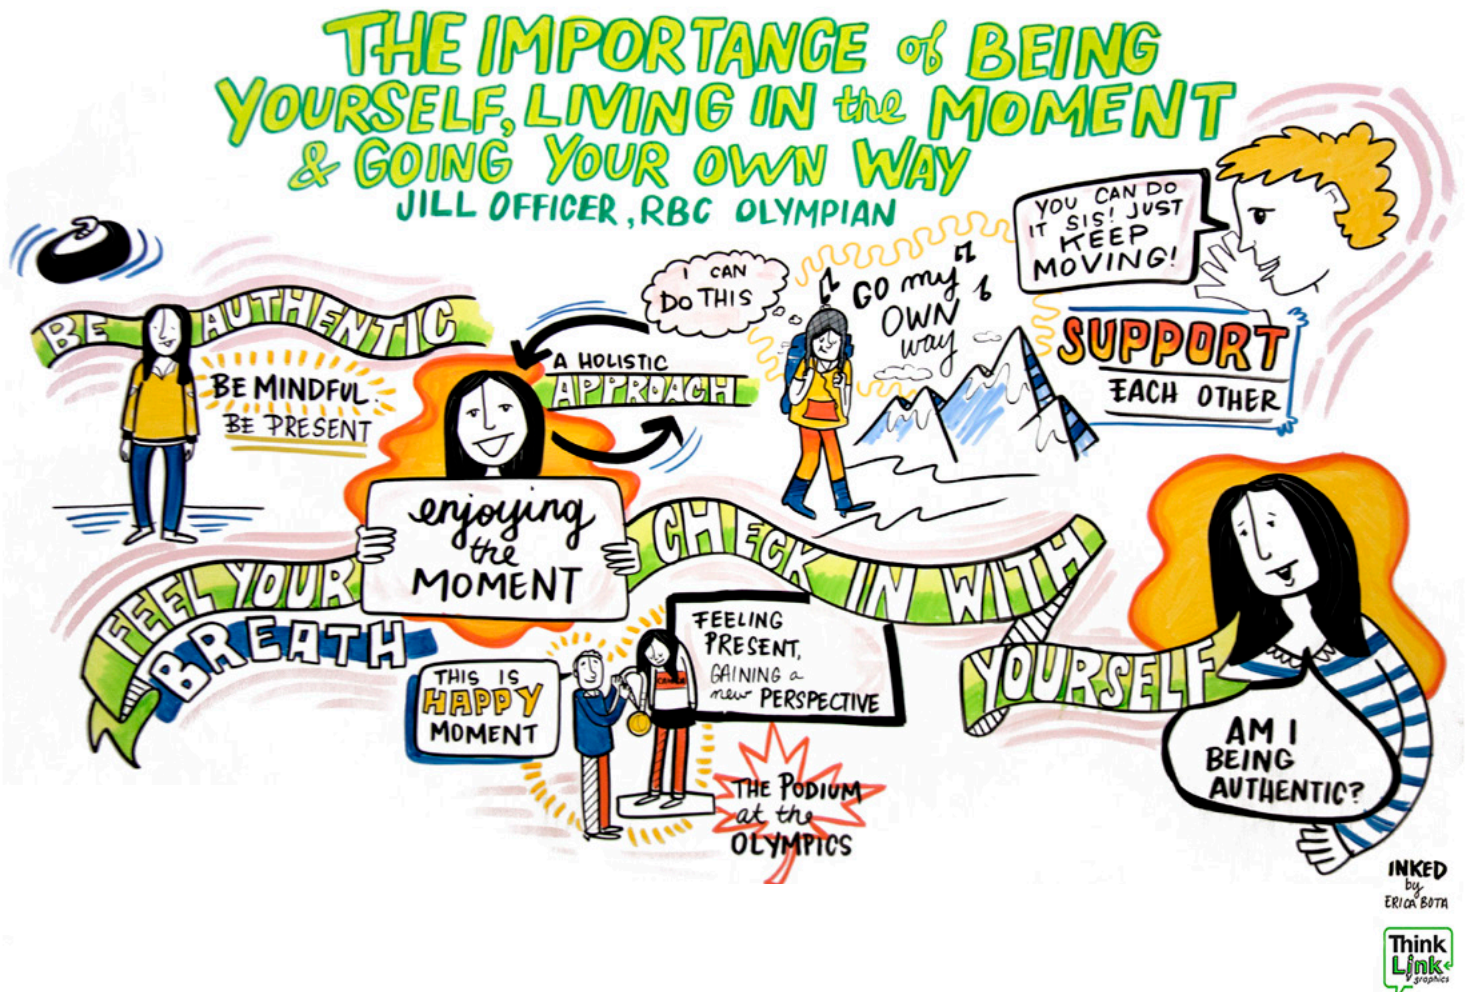 THE IMPORTANCE of BEING
YOURSELF, LIVING IN the MOMENT
& GOING YOUR OWN WAY
JILL OFFICER, RBC OLYMPIAN
BE AUTHENTIC
BE MINDFUL.
BE PRESENT
I CAN
DO THIS
A HOLISTIC
APPROACH
GO my
OWN
way
YOU CAN DO
IT SIS! JUST
KEEP
MOVING!
SUPPORT
EACH OTHER
enjoying
the
MOMENT
FEEL YOUR
BREATH
CHECK IN WITH
YOURSELF
THIS IS
HAPPY
MOMENT
CANADA
FEELING
PRESENT,
GAINING a
new PERSPECTIVE
THE PODIUM
at the
OLYMPICS
AM I
BEING
AUTHENTIC?
INKED
by
ERICA BOTA
Think
Link
graphics